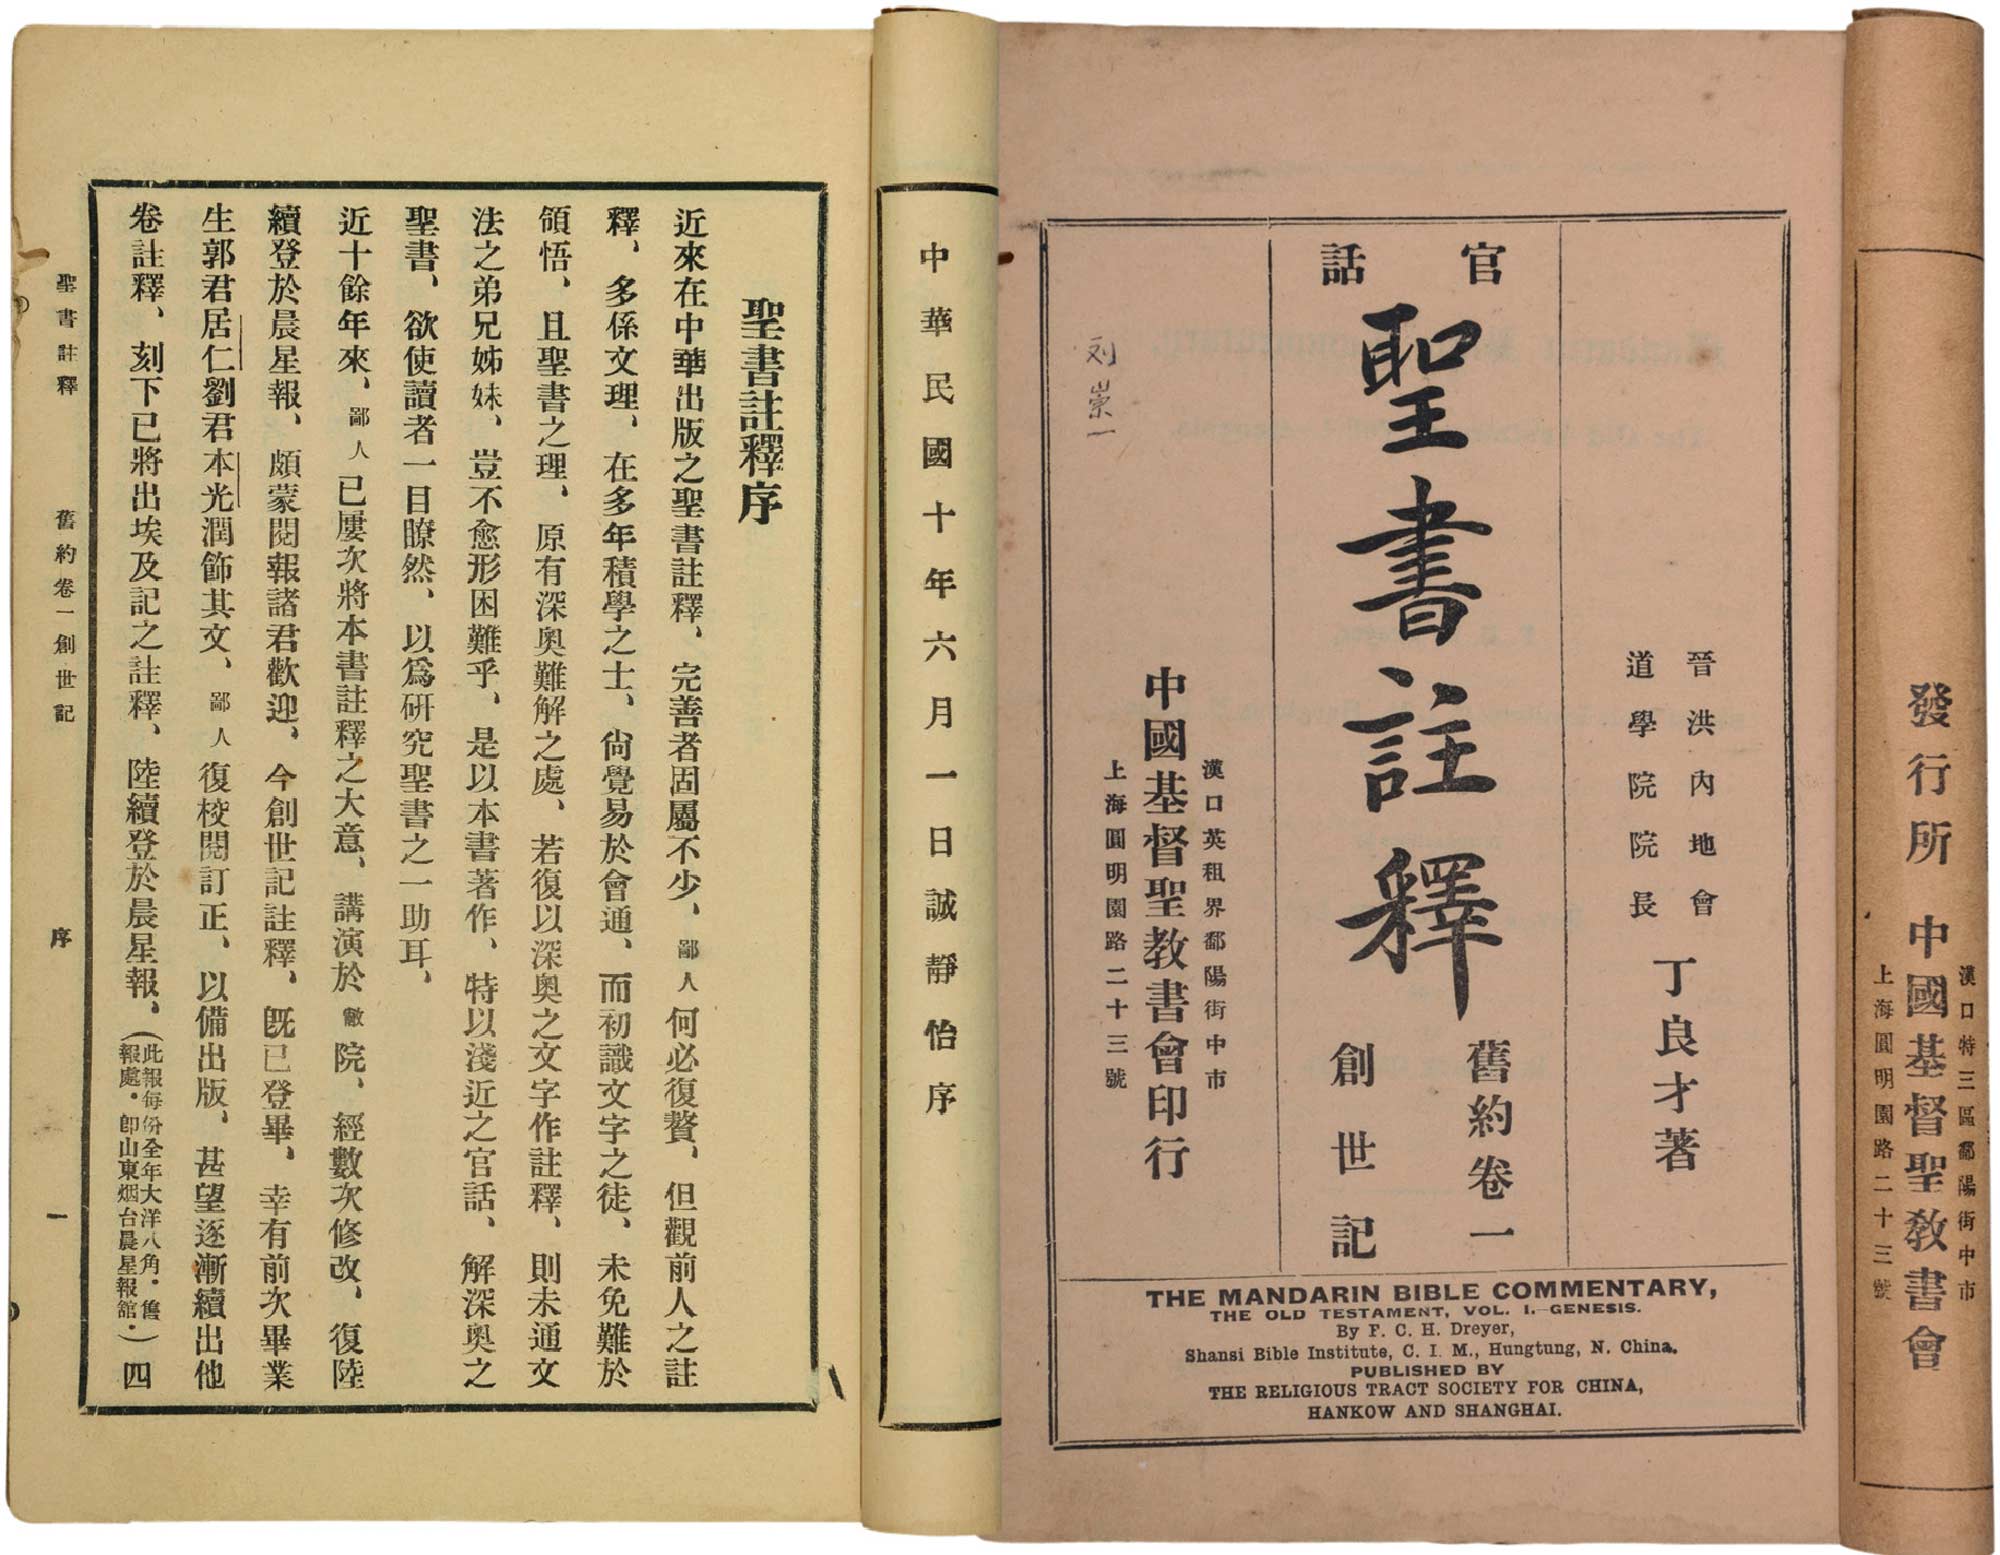 發行所 中國基督聖教書會
漢口特三區鄱陽街中市
上海圓明園路二十三號
晉洪內地會
道學院院長
丁良才著
官話
聖書註釋
舊約卷一
創世記
漢口英租界鄱陽街中市
中國基督聖教書會印行
上海圓明園路二十三號
刘崇一
THE MANDARIN BIBLE COMMENTARY,
THE OLD TESTAMENT, VOL. I.—GENESIS.
By F. C. H. Dreyer,
Shansi Bible Institute, C. I. M., Hungtung, N. China.
PUBLISHED BY
THE RELIGIOUS TRACT SOCIETY FOR CHINA,
HANKOW AND SHANGHAI.
中華民國十年六月一日誠靜怡序
聖書註釋序
近來在中華出版之聖書註釋、完善者固屬不少、鄙人何必復贅、但觀前人之註
釋、多係文理、在多年積學之士、尙覺易於會通、而初識文字之徒、未免難於
領悟、且聖書之理、原有深奧難解之處、若復以深奧之文字作註釋、則未通文
法之弟兄姊妹、豈不愈形困難乎、是以本書著作、特以淺近之官話、解深奧之
聖書、欲使讀者一目瞭然、以爲研究聖書之一助耳、
近十餘年來、鄙人已屢次將本書註釋之大意、講演於敝院、經數次修改、復陸
續登於晨星報、頗蒙閱報諸君歡迎、今創世記註釋、旣已登畢、幸有前次畢業
生郭君居仁劉君本光潤飾其文、鄙人復校閱訂正、以備出版、甚望逐漸續出他
卷註釋、刻下已將出埃及記之註釋、陸續登於晨星報、(此報每份全年大洋八角·售報處·卽山東烟台晨星報舘·)四
聖書註釋 舊約卷一創世記 序 一